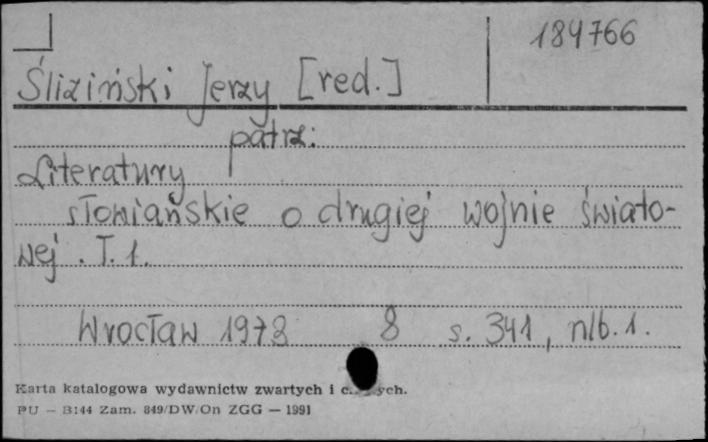 184766
Śliziński Jerzy [red.]
patrz:
Literatury
słowiańskie o drugiej wojnie świato-
wej. T. 1.
Wrocław 1973 8 s. 341, nlb. 1.
Karta katalogowa wydawnictw zwartych i
PU — B144 Zam. 849/DW/On ZGG — 1991